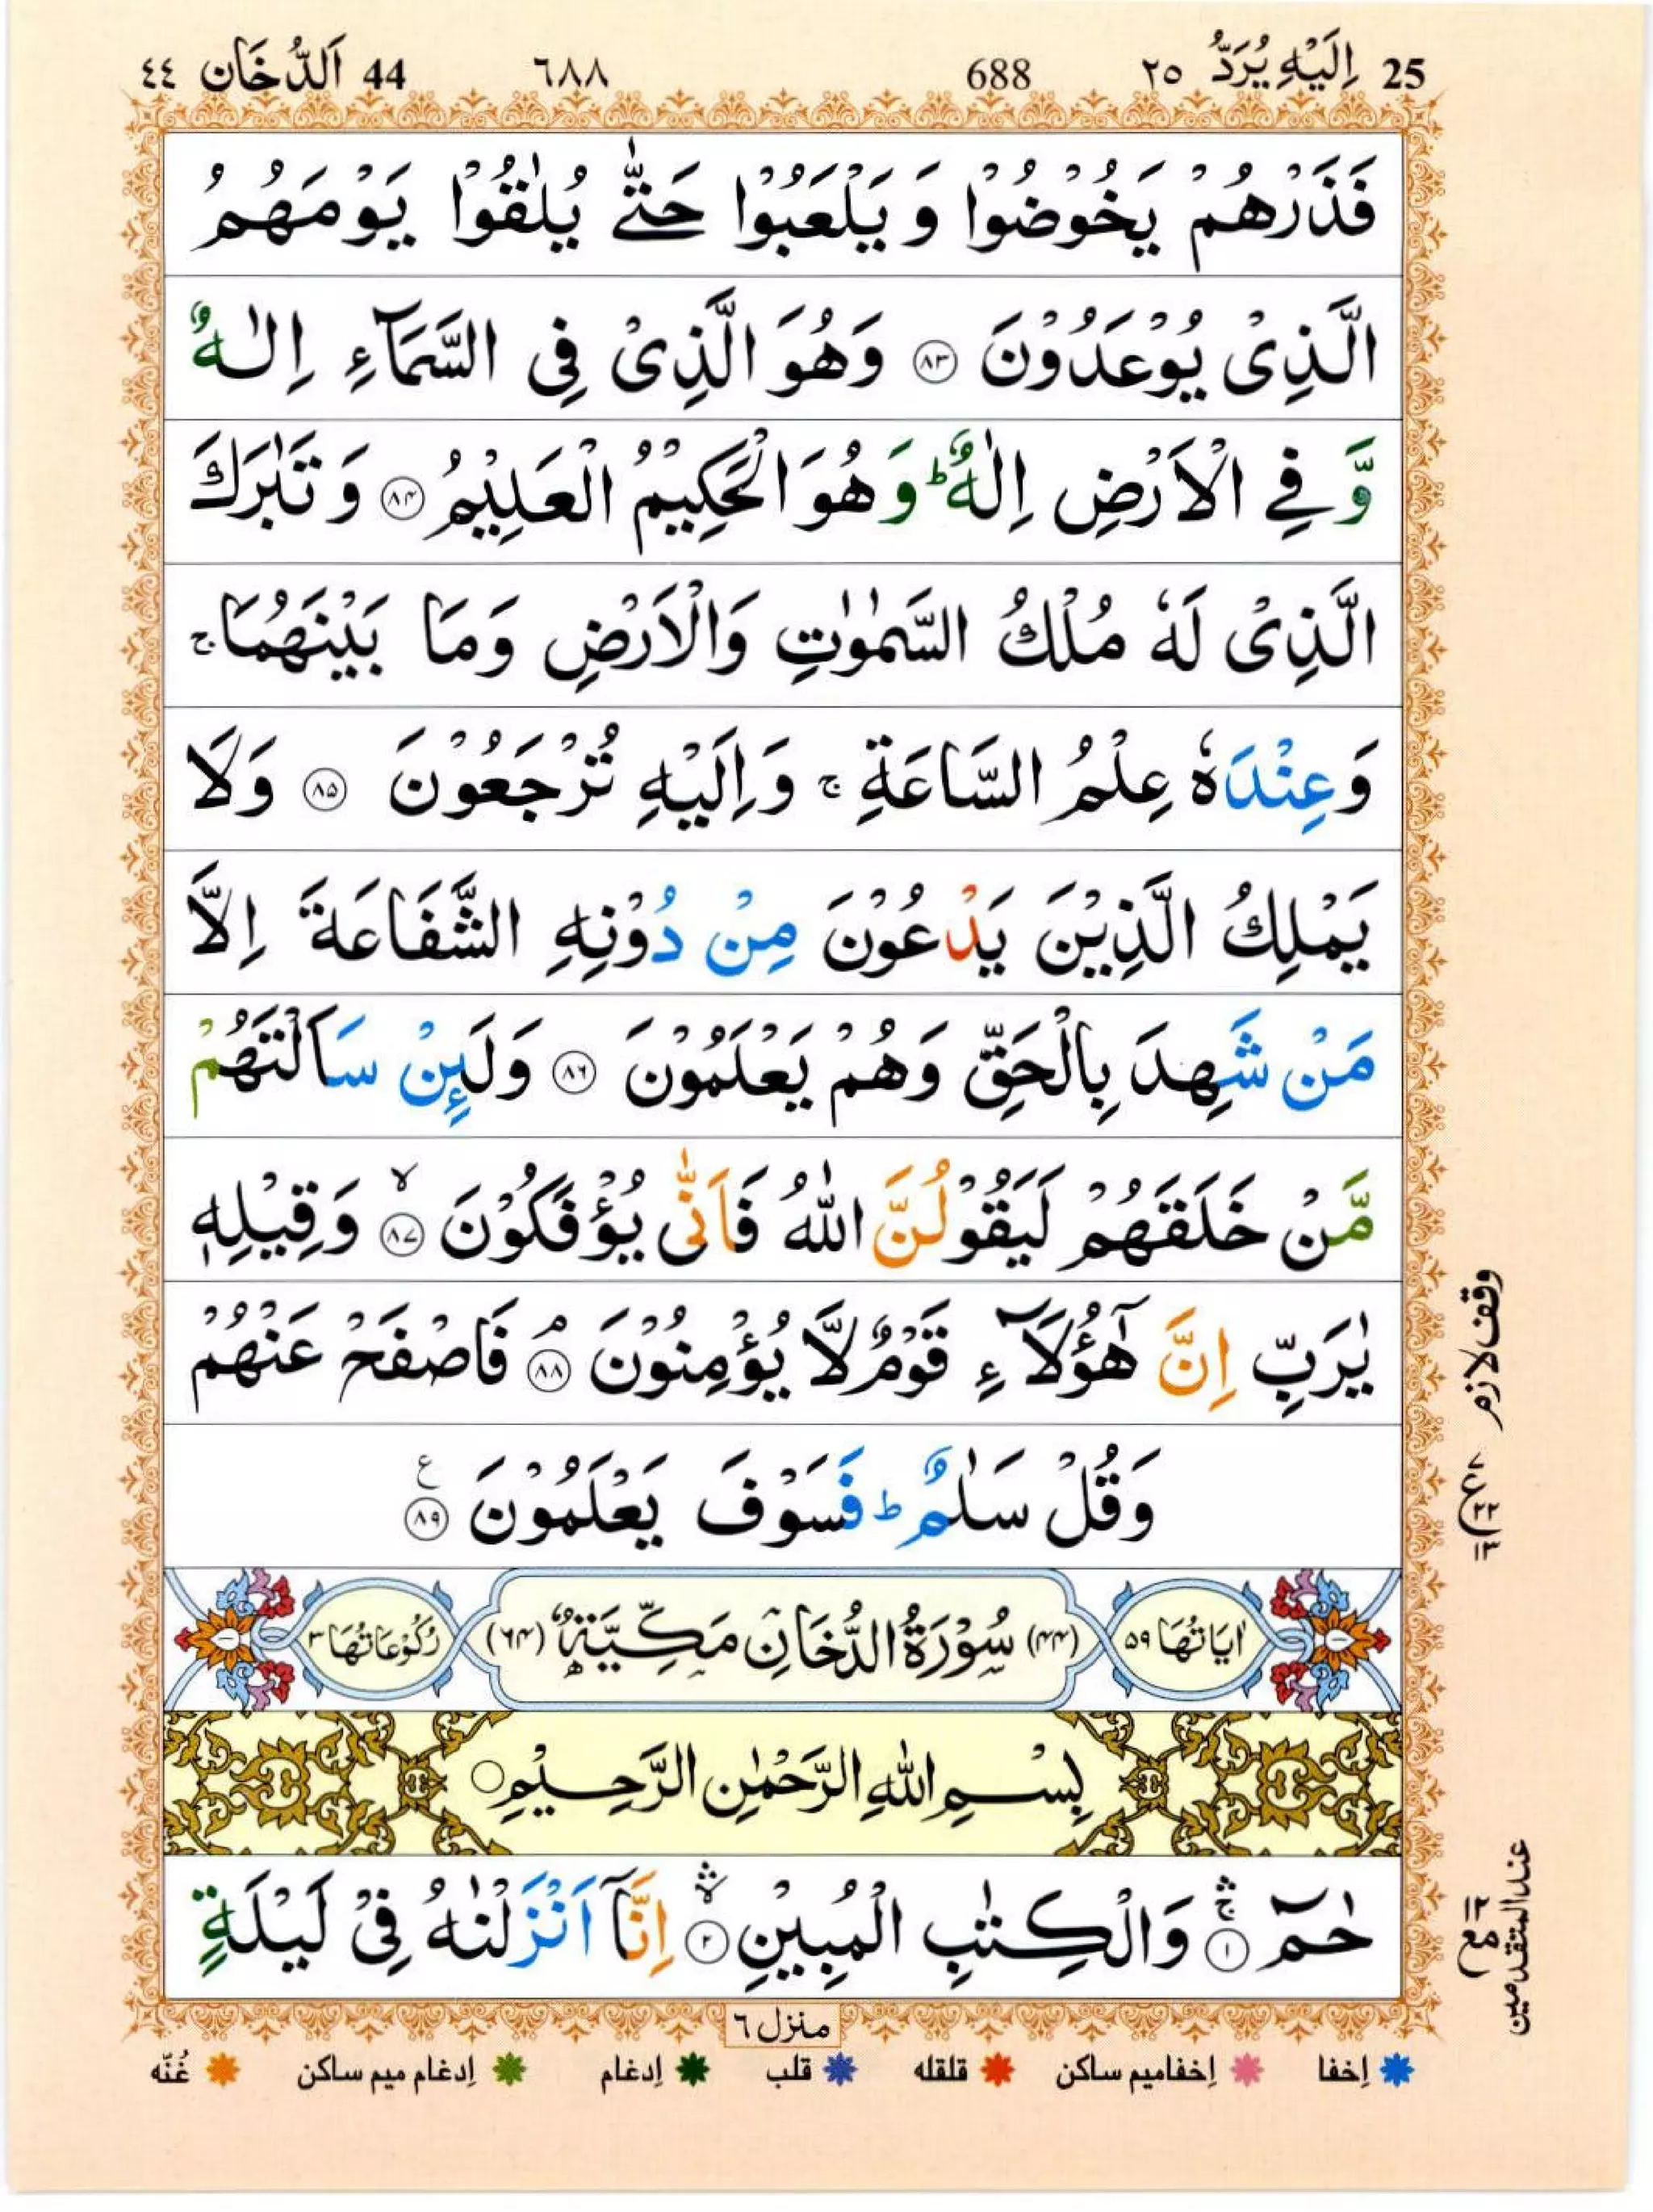 25 اِلَيْهِ يُرَدُّ ٢٥ 688 ٦٨٨ 44 اَلدُّخَان ٤٤
فَذَرْهُمْ يَخُوْضُوْا وَ يَلْعَبُوْا حَتّٰى يُلٰقُوْا يَوْمَهُمُ
الَّذِىْ يُوْعَدُوْنَ ۝۸۳ وَهُوَ الَّذِىْ فِى السَّمَآءِ اِلٰهٌ
وَّ فِى الْاَرْضِ اِلٰهٌ ؕ وَ هُوَ الْحَكِيْمُ الْعَلِيْمُ ۝۸۴ وَ تَبٰرَكَ
الَّذِىْ لَهٗ مُلْكُ السَّمٰوٰتِ وَالْاَرْضِ وَمَا بَيْنَهُمَا ۚ
وَعِنْدَهٗ عِلْمُ السَّاعَةِ ۚ وَاِلَيْهِ تُرْجَعُوْنَ ۝۸۵ وَلَا
يَمْلِكُ الَّذِيْنَ يَدْعُوْنَ مِنْ دُوْنِهِ الشَّفَاعَةَ اِلَّا
مَنْ شَهِدَ بِالْحَقِّ وَهُمْ يَعْلَمُوْنَ ۝۸۶ وَلَىِٕنْ سَاَلْتَهُمْ
مَّنْ خَلَقَهُمْ لَيَقُوْلُنَّ اللّٰهُ فَاَنّٰى يُؤْفَكُوْنَ ۙ۝۸۷ وَقِيْلِهٖ
يٰرَبِّ اِنَّ هٰٓؤُلَآءِ قَوْمٌ لَّا يُؤْمِنُوْنَ ۘ۝۸۸ فَاصْفَحْ عَنْهُمْ
وَقُلْ سَلٰمٌ ؕ فَسَوْفَ يَعْلَمُوْنَ ۝۸۹ ع
وقف لازم
ع ٧ ٢٢ ١٣
اٰيَاتُهَا ۵۹ (۴۴) سُوْرَةُ الدُّخَانِ مَكِّيَّةٌ (۶۴) رُكُوْعَاتُهَا ۳
بِسْمِ اللّٰهِ الرَّحْمٰنِ الرَّحِيْمِ ۝
حٰمٓ ۚۛ۝۱ وَالْكِتٰبِ الْمُبِيْنِ ۙۛ۝۲ اِنَّاۤ اَنْزَلْنٰهُ فِىْ لَيْلَةٍ
مع ١٢ عند المتقدمين
منزل ٦
اِخفا اِخفا ميم ساكن قلقله قلب اِدغام اِدغام ميم ساكن غُنّه